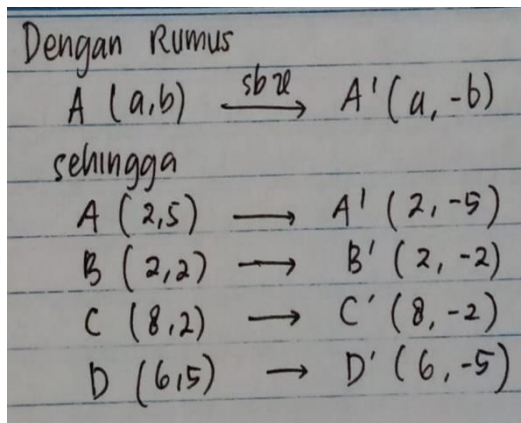 Dengan Rumus
A (a,b) sb x ⟶ A' (a, -b)
sehingga
A (2,5) ⟶ A' (2, -5)
B (2,2) ⟶ B' (2, -2)
C (8,2) ⟶ C' (8, -2)
D (6,5) ⟶ D' (6, -5)